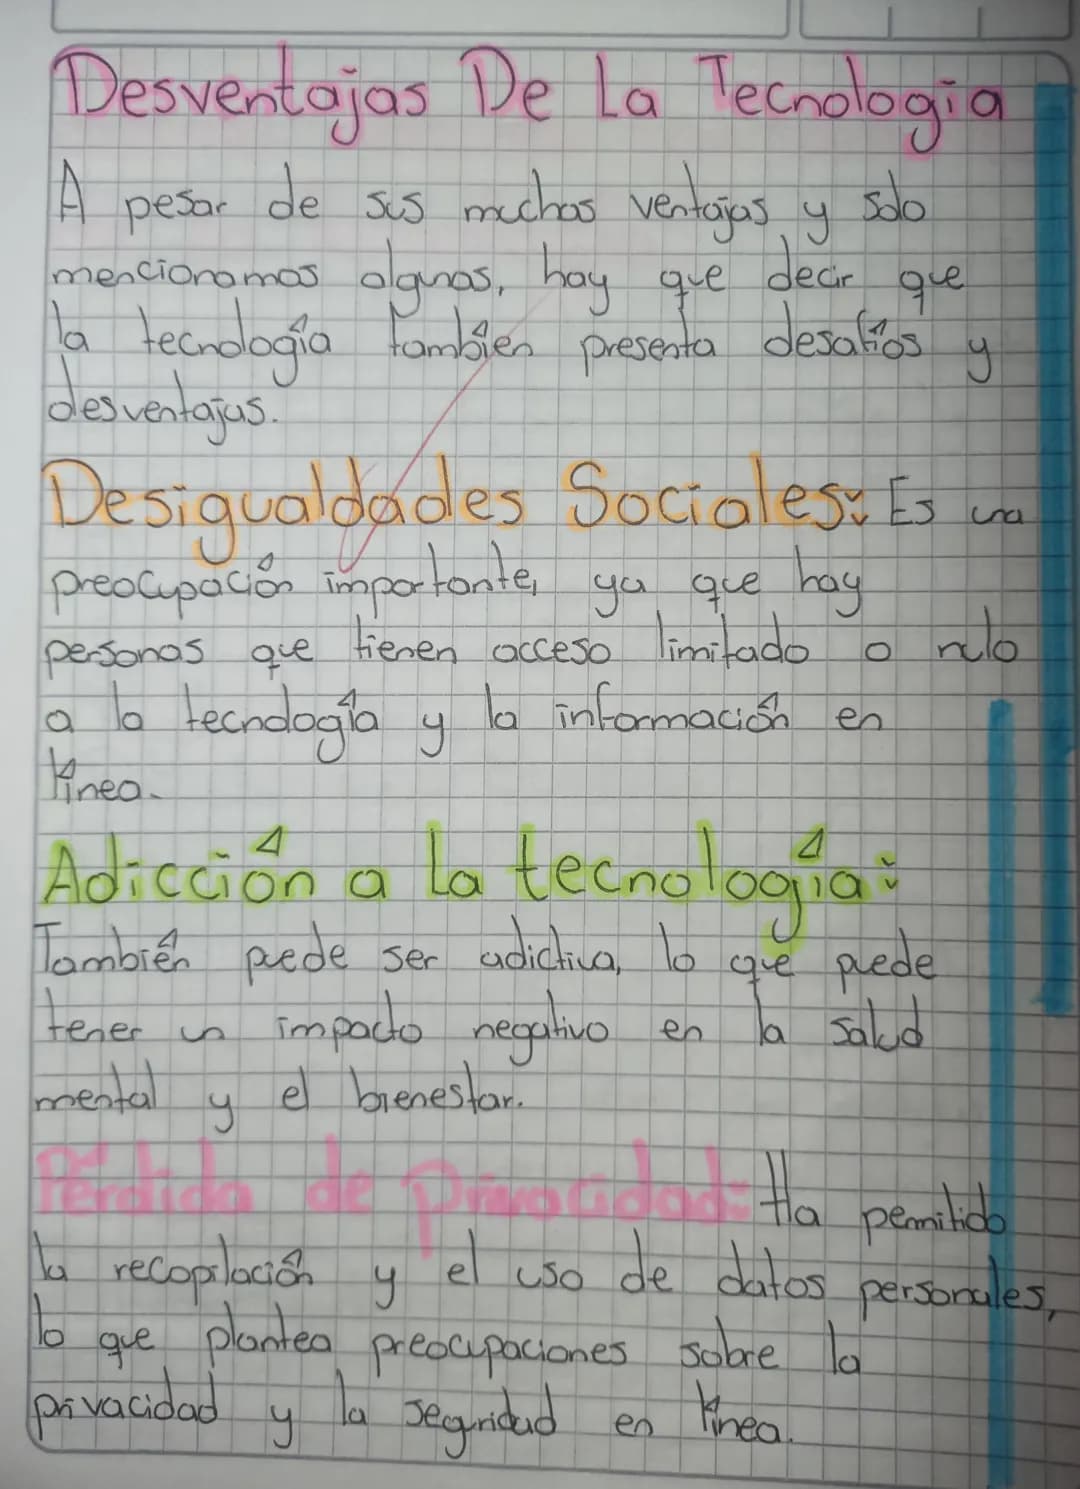 Desventajas De La Tecnologia
A pesar de sus muchas ventajas y solo
mencionamos algunas, hay que decir que
la tecnología también presenta desafíos y
desventajas.
Desigualdades Sociales: Es una
preocupación importante, ya que hay
personas que tienen acceso limitado o nulo
a la tecnología y la información en
línea.
Adicción a la tecnología:
También puede ser adictiva, lo que puede
tener un impacto negativo en la salud
mental y el bienestar.
Pérdida de privacidad: Ha permitido
la recopilación y el uso de datos personales,
lo que plantea preocupaciones sobre la
privacidad y la seguridad en línea.